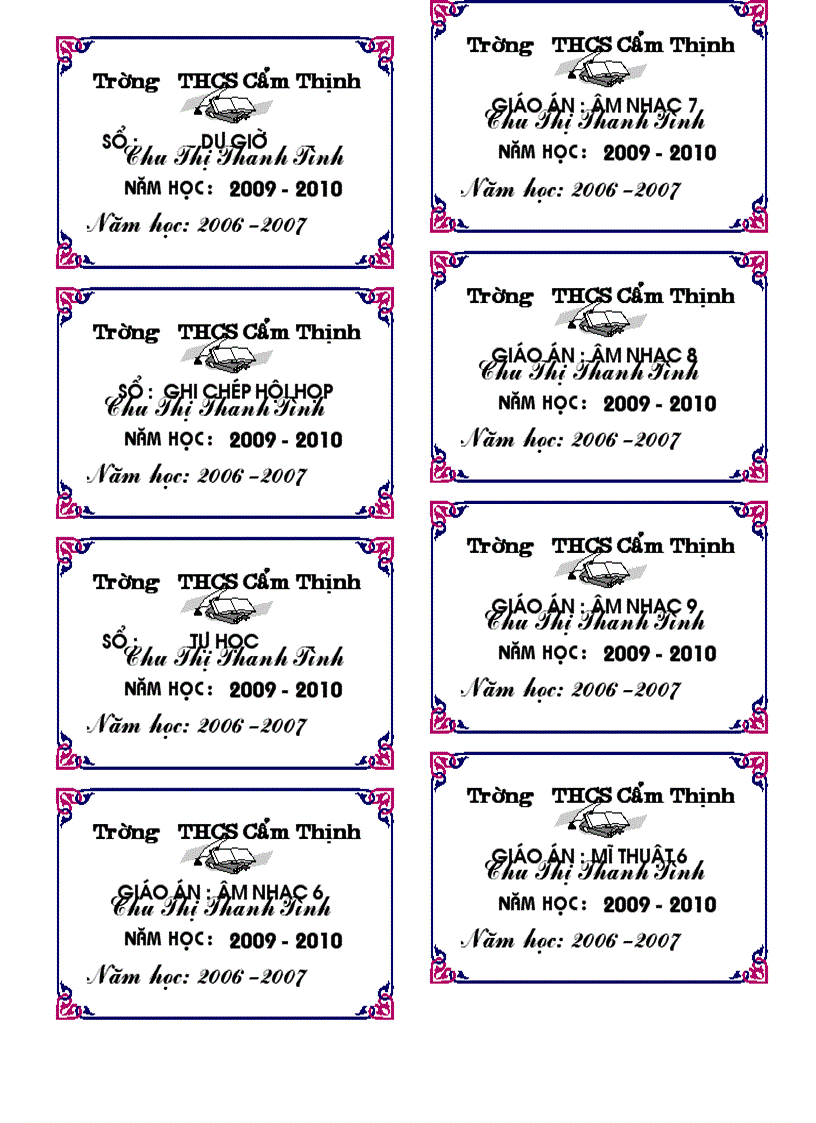 Trờng THCS Cẩm Thịnh
SỔ : DỰ GIỜ
Chu Thị Thanh Tình
NĂM HỌC : 2009 - 2010
Năm học: 2006 -2007
Trờng THCS Cẩm Thịnh
SỔ : GHI CHÉP HỘI HỌP
Chu Thị Thanh Tình
NĂM HỌC : 2009 - 2010
Năm học: 2006 -2007
Trờng THCS Cẩm Thịnh
SỔ : TỰ HỌC
Chu Thị Thanh Tình
NĂM HỌC : 2009 - 2010
Năm học: 2006 -2007
Trờng THCS Cẩm Thịnh
GIÁO ÁN : ÂM NHẠC 6
Chu Thị Thanh Tình
NĂM HỌC : 2009 - 2010
Năm học: 2006 -2007
Trờng THCS Cẩm Thịnh
GIÁO ÁN : ÂM NHẠC 7
Chu Thị Thanh Tình
NĂM HỌC : 2009 - 2010
Năm học: 2006 -2007
Trờng THCS Cẩm Thịnh
GIÁO ÁN : ÂM NHẠC 8
Chu Thị Thanh Tình
NĂM HỌC : 2009 - 2010
Năm học: 2006 -2007
Trờng THCS Cẩm Thịnh
GIÁO ÁN : ÂM NHẠC 9
Chu Thị Thanh Tình
NĂM HỌC : 2009 - 2010
Năm học: 2006 -2007
Trờng THCS Cẩm Thịnh
GIÁO ÁN : MĨ THUẬT 6
Chu Thị Thanh Tình
NĂM HỌC : 2009 - 2010
Năm học: 2006 -2007